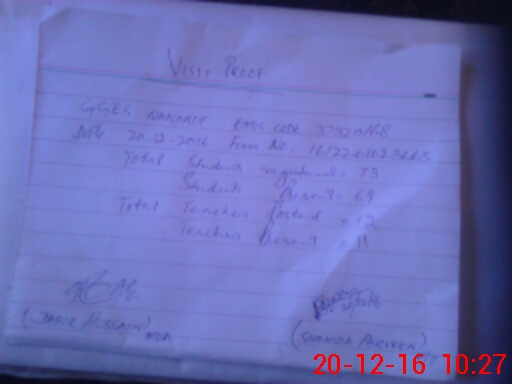 VISIT PROOF
GGES NANAKOT EMIS CODE 37320168
Date 20-12-2016 Form No:
Total Students registered = 73
Students Present = 69
Total Teachers Posted = 12
Teachers Present = 11
(JABIR HUSSAIN) (SHANZA PARVEEN)
MEA
20-12-16 10:27